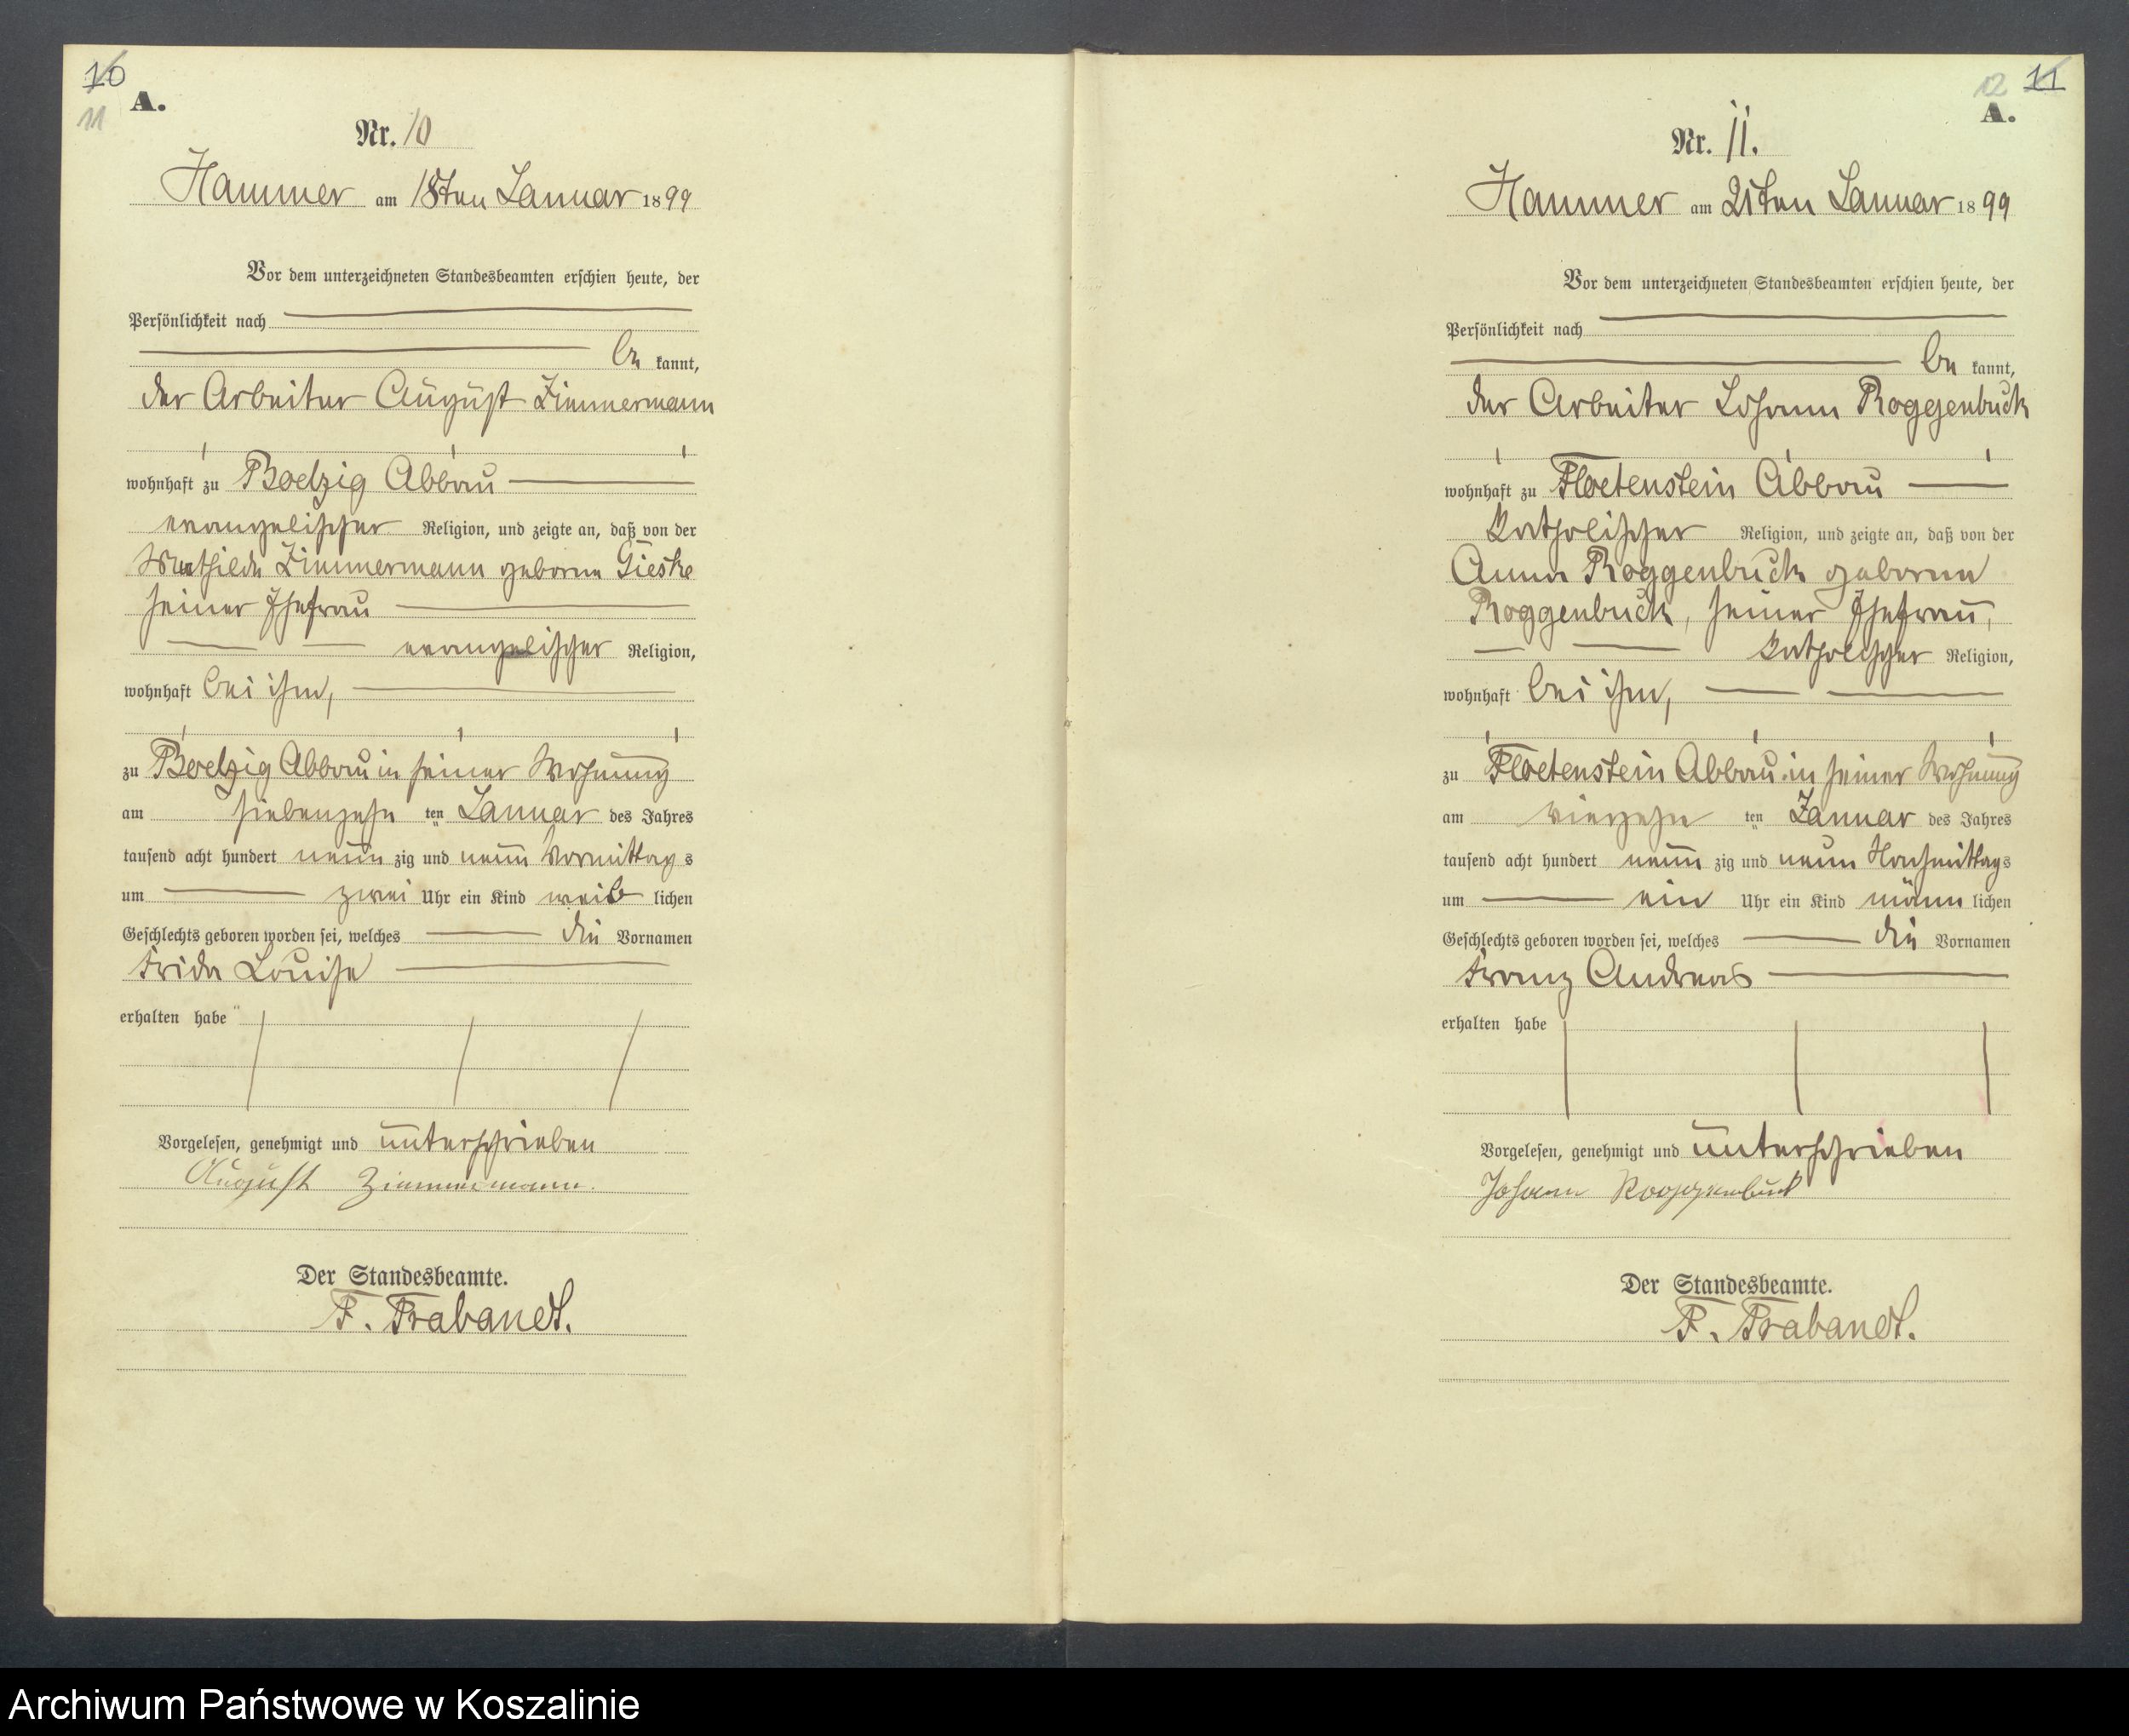 10
11
A.
Nr. 10
Hammer am 18ten Januar 1899
Vor dem unterzeichneten Standesbeamten erschien heute, der
Persönlichkeit nach
be kannt,
der Arbeiter August Zimmermann
wohnhaft zu Boelzig Abbau
evangelischer Religion, und zeigte an, daß von der
Mathilde Zimmermann geborne Gieske
seiner Ehefrau
evangelischer Religion,
wohnhaft bei ihm,
zu Boelzig Abbau in seiner Wohnung
am siebenzehn ten Januar des Jahres
tausend acht hundert neun zig und neun Vormittags
um zwei Uhr ein Kind weib lichen
Geschlechts geboren worden sei, welches die Vornamen
Frida Louise
erhalten habe
Vorgelesen, genehmigt und unterschrieben
August Zimmermann.
Der Standesbeamte.
F. Trabandt.
12 11
A.
Nr. 11.
Hammer am 21ten Januar 1899
Vor dem unterzeichneten Standesbeamten erschien heute, der
Persönlichkeit nach
be kannt,
der Arbeiter Johann Roggenbuck
wohnhaft zu Floetenstein Abbau
katholischer Religion, und zeigte an, daß von der
Anna Roggenbuck geborne
Roggenbuck, seiner Ehefrau,
katholischer Religion,
wohnhaft bei ihm,
zu Floetenstein Abbau in seiner Wohnung
am vierzehn ten Januar des Jahres
tausend acht hundert neun zig und neun Nachmittags
um ein Uhr ein Kind männ lichen
Geschlechts geboren worden sei, welches die Vornamen
Franz Andreas
erhalten habe
Vorgelesen, genehmigt und unterschrieben
Johann Roggenbuck
Der Standesbeamte.
F. Trabandt.
Archiwum Państwowe w Koszalinie